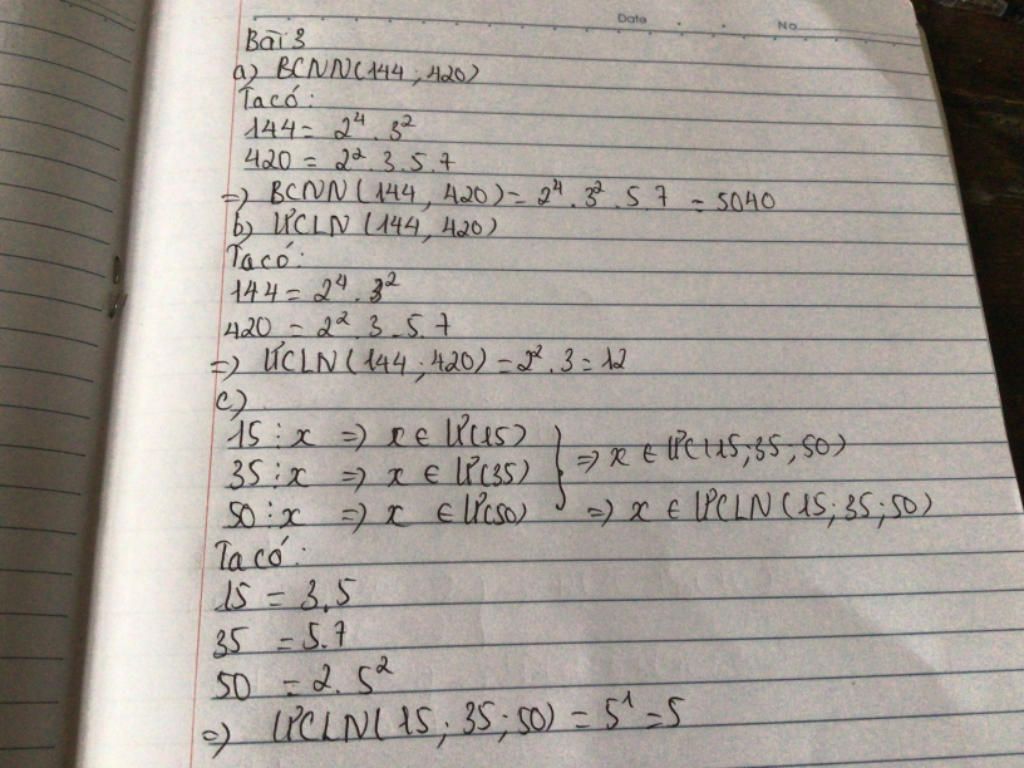 Date No
Bài 3
a) BCNN(144; 420)
Ta có:
144 = 2⁴ . 3²
420 = 2² . 3 . 5 . 7
=> BCNN (144, 420) = 2⁴ . 3² . 5 . 7 = 5040
b) ƯCLN (144, 420)
Ta có:
144 = 2⁴ . 3²
420 = 2² . 3 . 5 . 7
=> ƯCLN (144; 420) = 2² . 3 = 12
c)
15 ⋮ x => x ∈ Ư(15)
35 ⋮ x => x ∈ Ư(35) } => x ∈ ƯC(15; 35; 50)
50 ⋮ x => x ∈ Ư(50) => x ∈ ƯCLN (15; 35; 50)
Ta có:
15 = 3.5
35 = 5.7
50 = 2. 5²
=> ƯCLN(15; 35; 50) = 5¹ = 5